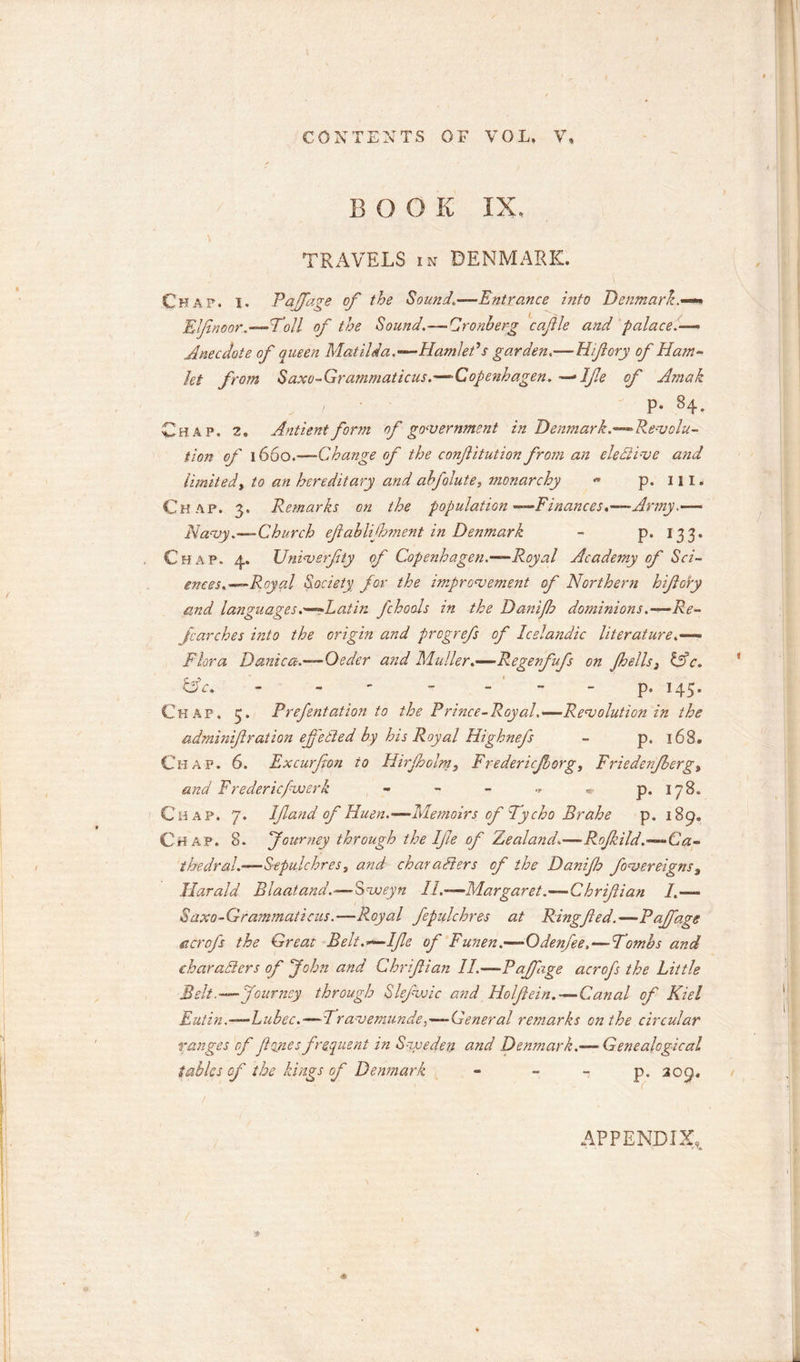 CONTENTS OF VOL. V.
BOOK IX.
TRAVELS IN DENMARK.
CHAP. 1. Paſſage of the Sound.—Entrance into Denmark.—
Elſinoor.—Toll of the Sound.—Cronberg caſtle and palace.—
Anecdote of queen Matilda.—Hamlet's garden.—Hiſtory of Ham-
let from Saxo-Grammaticus.—Copenhagen.—Iſle of Amak
p. 84.
CHAP. 2. Antient form of government in Denmark.—Revolu-
tion of 1660.—Change of the conſtitution from an elective and
limited, to an hereditary and abſolute, monarchy - p. 111.
CHAP. 3. Remarks on the population—Finances.—Army.—
Navy.—Church eſtabliſhment in Denmark - p. 133.
CHAP. 4. Univerſity of Copenhagen.—Royal Academy of Sci-
ences.—Royal Society for the improvement of Northern hiſtory
and languages.—Latin ſchools in the Daniſh dominions.—Re-
ſearches into the origin and progreſs of Icelandic literature.—
Flora Danica.—Oeder and Muller.—Regenfuſs on ſhells, &c.
&c. - - - - - - - p. 145.
CHAP. 5. Preſentation to the Prince-Royal.—Revolution in the
adminiſtration effected by his Royal Highneſs - p. 168.
CHAP. 6. Excurſion to Hirſholm, Fredericſborg, Friedenſberg,
and Fredericſwerk - - - - - p. 178.
CHAP. 7. Iſland of Huen.—Memoirs of Tycho Brahe p. 189.
CHAP. 8. Journey through the Iſle of Zealand.—Roſkild.—Ca-
thedral.—Sepulchres, and characters of the Daniſh ſovereigns,
Harald Blaatand.—Sweyn II.—Margaret.—Chriſtian I.—
Saxo-Grammaticus.—Royal ſepulchres at Ringſted.—Paſſage
acroſs the Great Belt.—Iſle of Funen.—Odenſee.—Tombs and
characters of John and Chriſtian II.—Paſſage acroſs the Little
Belt.—Journey through Sleſwic and Holſtein.—Canal of Kiel
Eutin.—Lubec.—Travemunde,—General remarks on the circular
ranges of ſtones frequent in Sweden and Denmark.—Genealogical
tables of the kings of Denmark - - - p. 209.
APPENDIX,